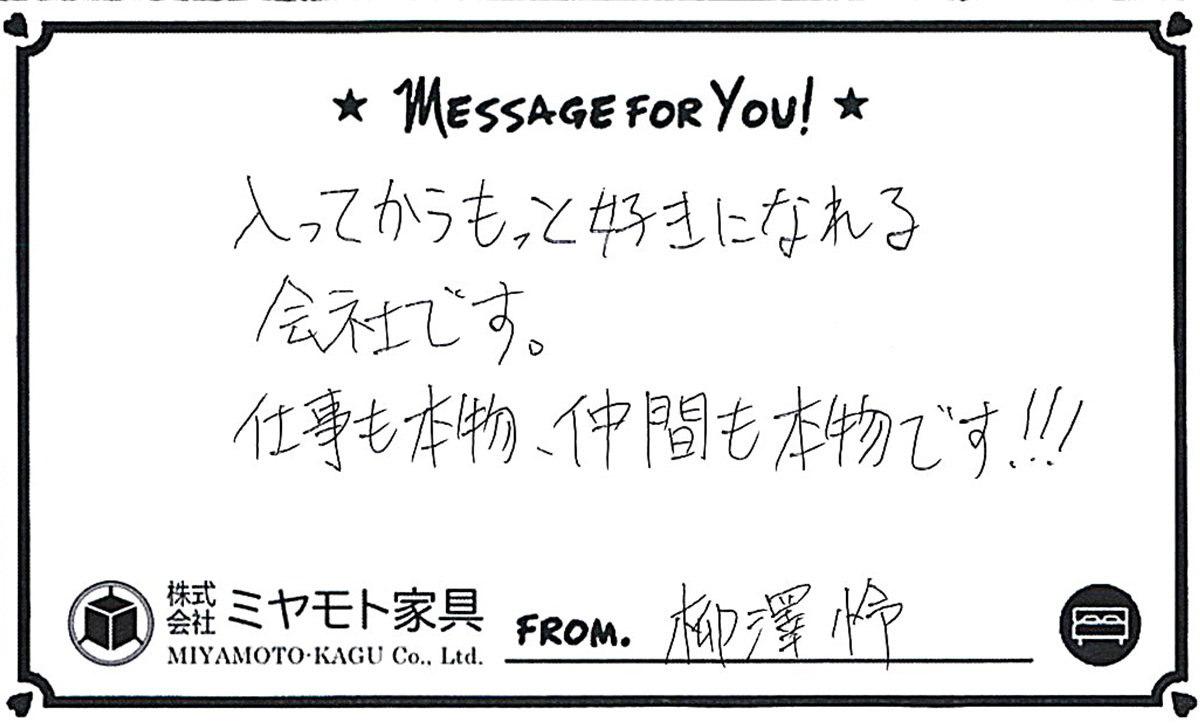 ★ MESSAGE FOR YOU! ★
入ってからもっと好きになれる
会社です。
仕事も本物、仲間も本物です!!!
株式会社 ミヤモト家具
MIYAMOTO-KAGU Co., Ltd.
FROM. 柳澤 怜